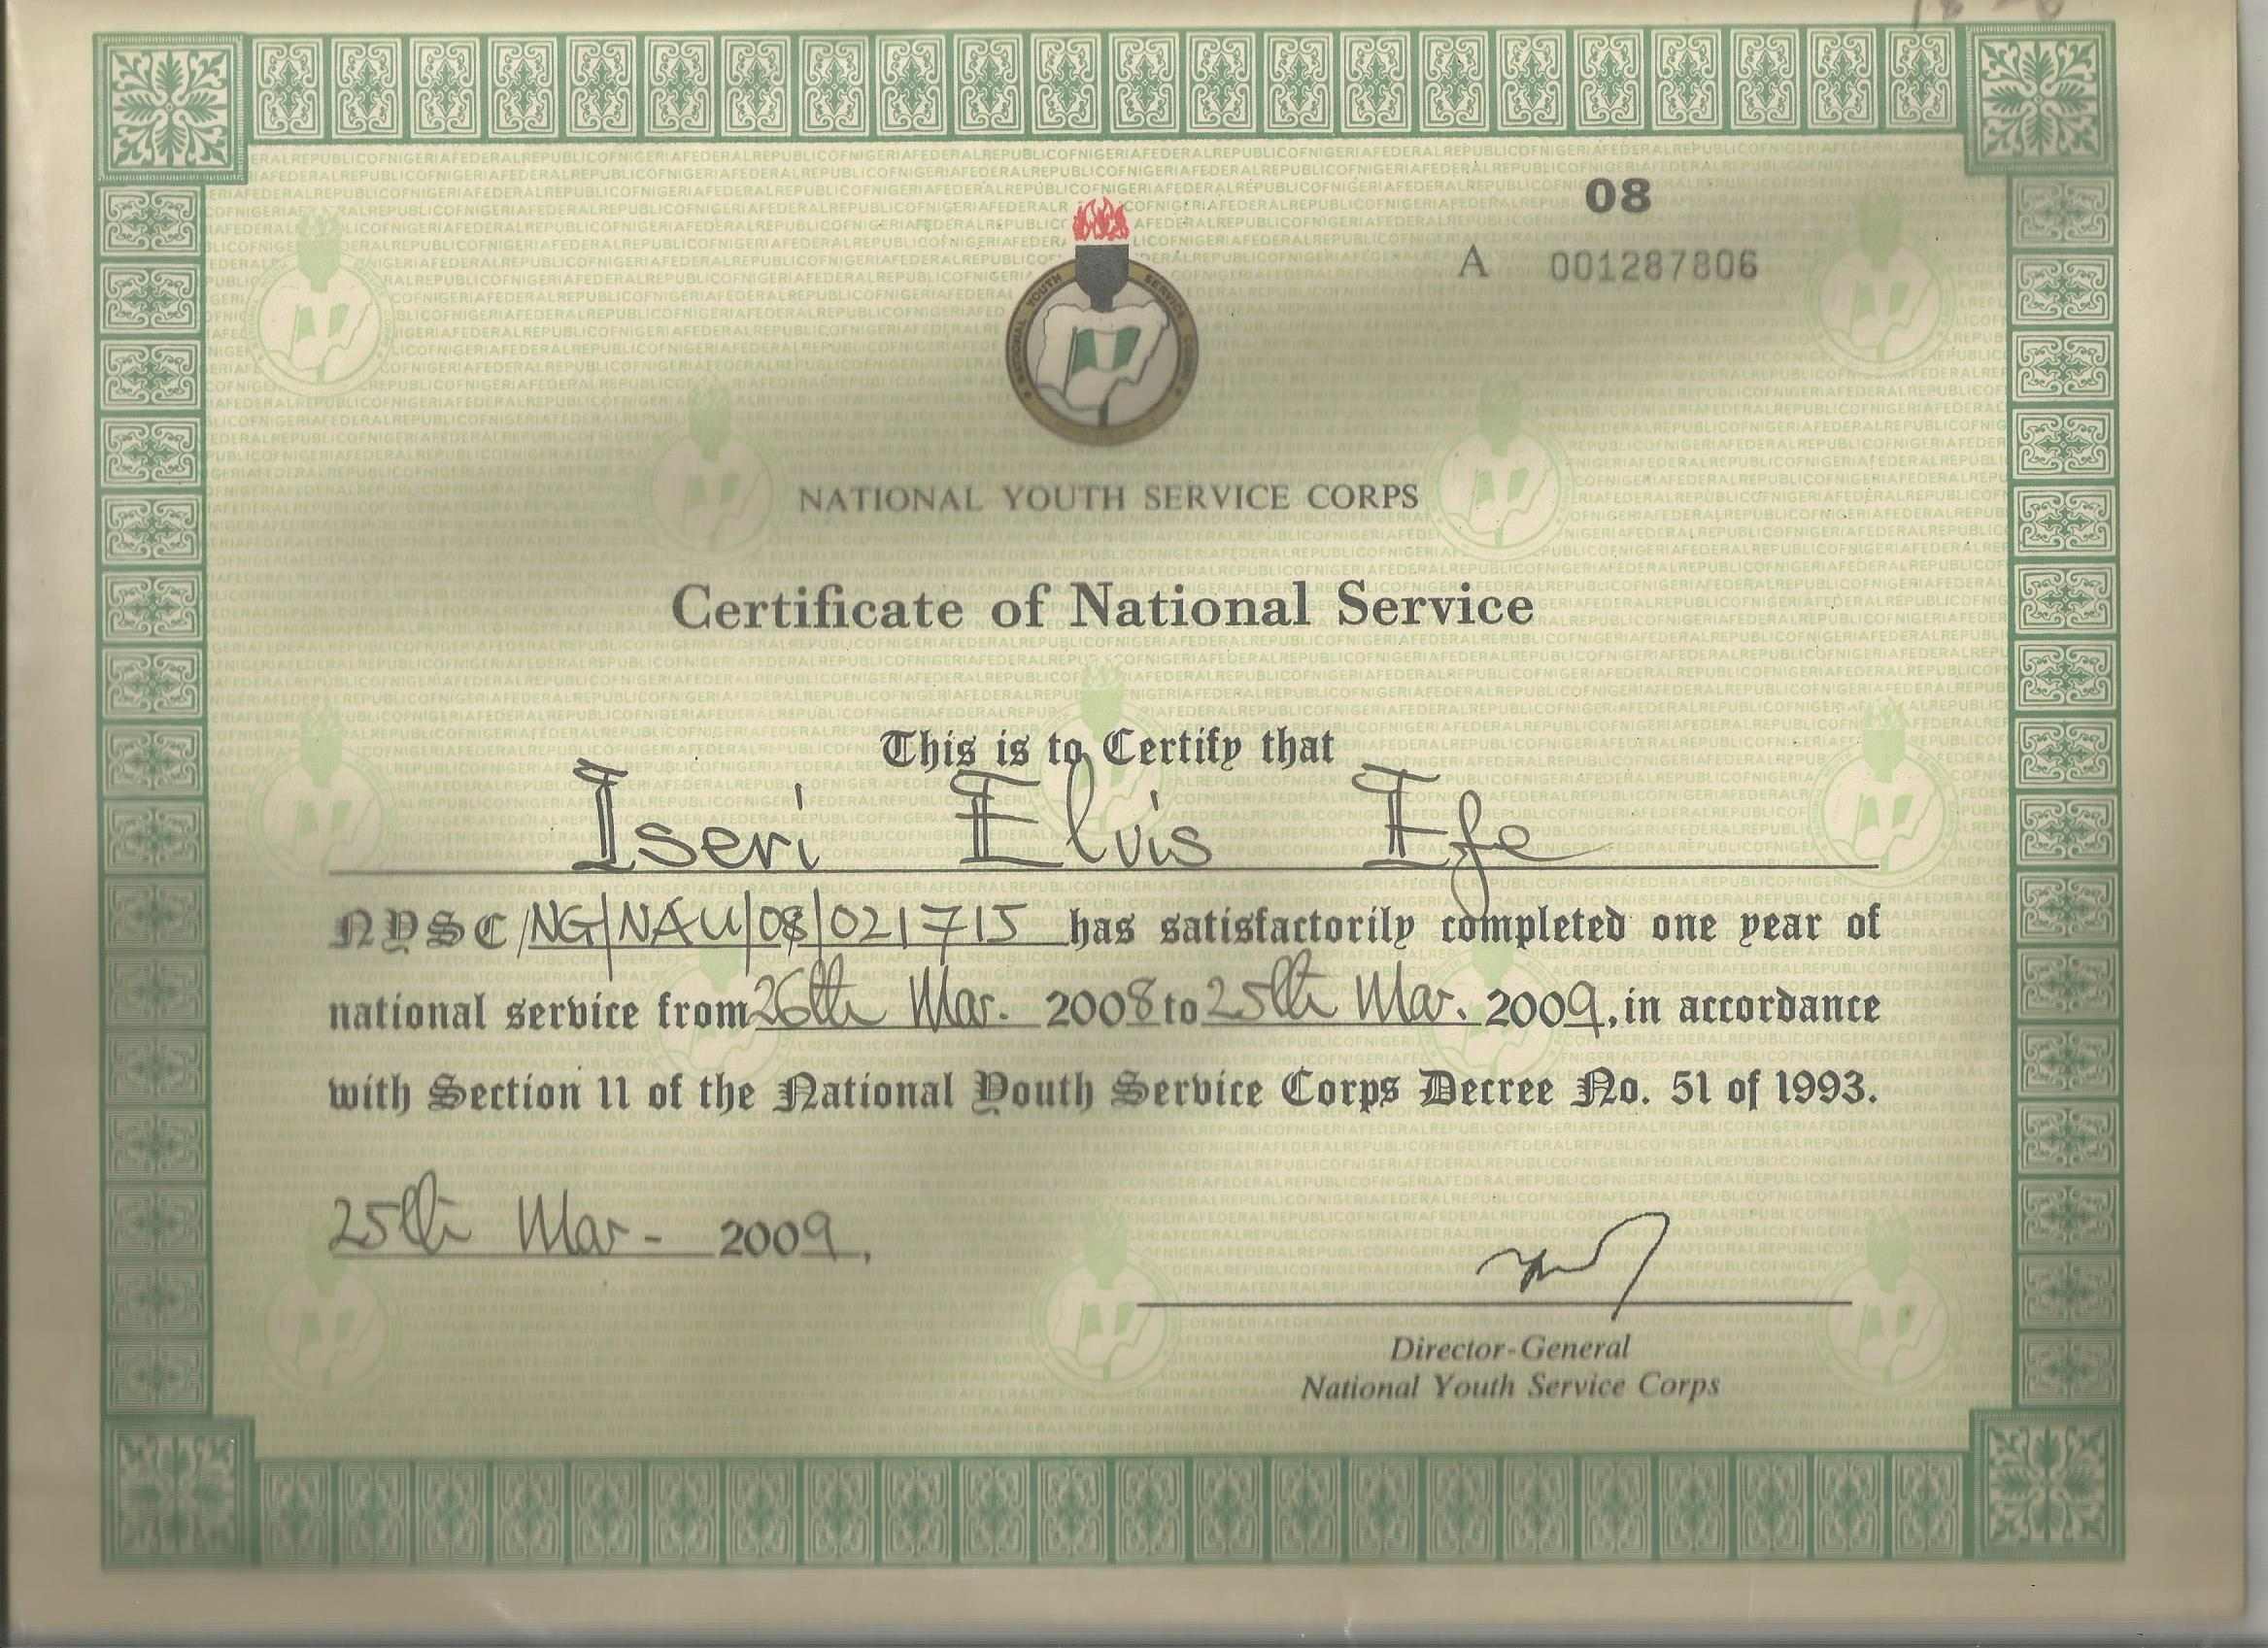 08
A 001287806
NATIONAL YOUTH SERVICE CORPS
NATIONAL YOUTH SERVICE CORPS
Certificate of National Service
This is to Certify that
Iseri Elvis Efe
NYSC/NG/NAU/08/021715 has satisfactorily completed one year of
national service from 26th Mar. 2008 to 25th Mar. 2009, in accordance
with Section 11 of the National Youth Service Corps Decree No. 51 of 1993.
25th Mar - 2009.
Director-General
National Youth Service Corps